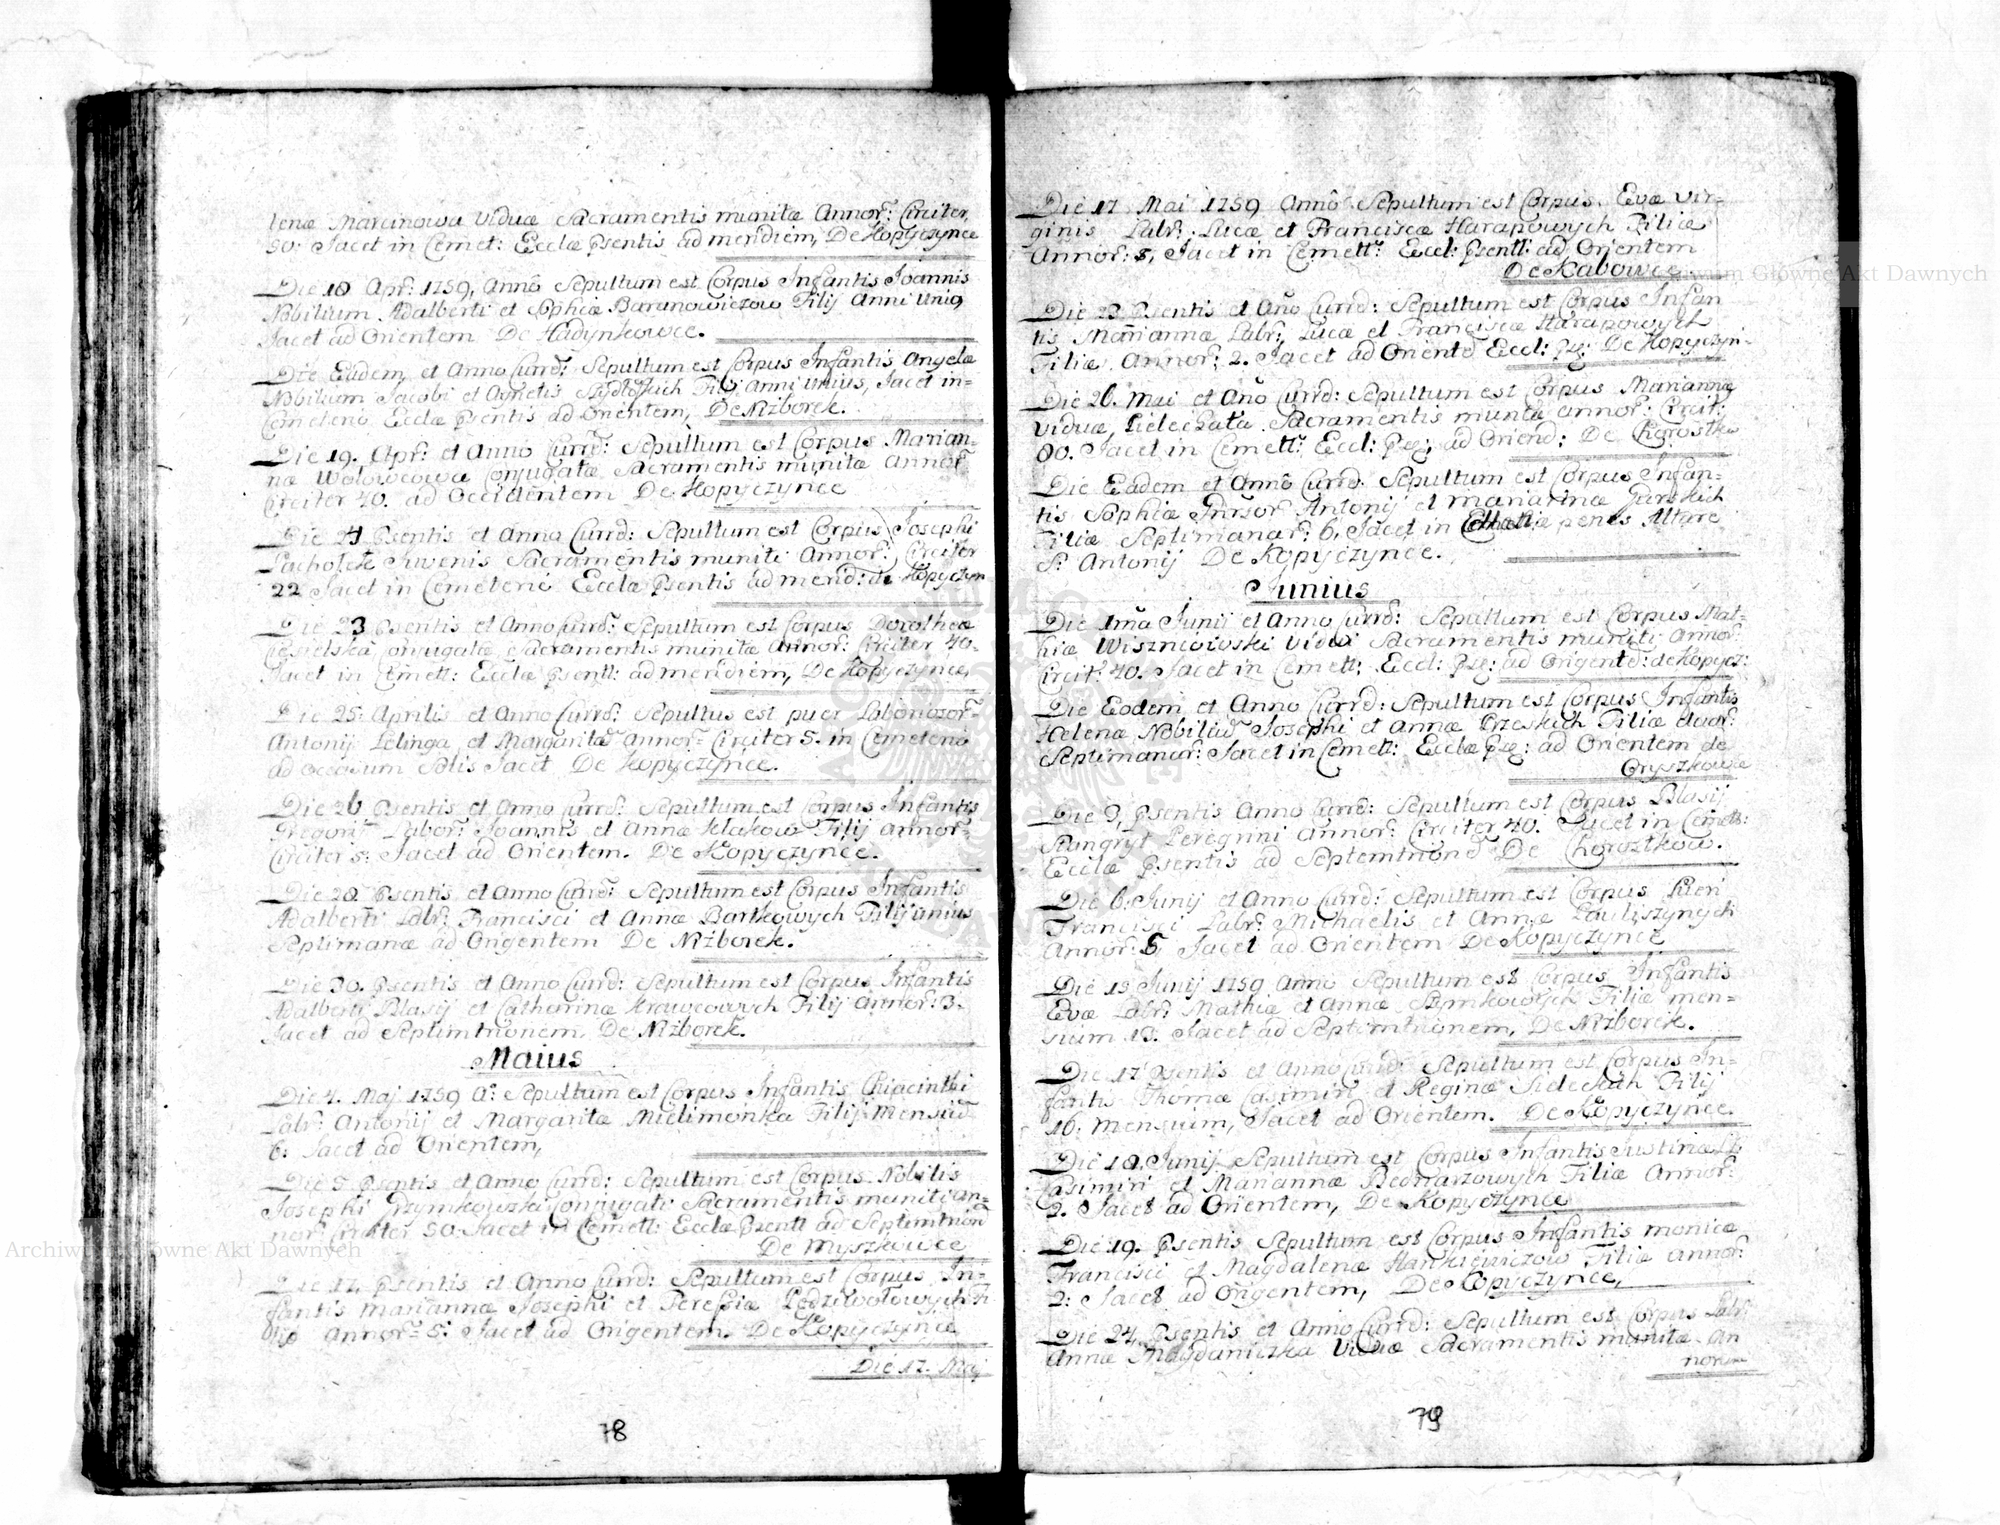 lenæ Marcinowa Viduæ Sacramentis munitæ Annor: Circiter
90: Jacet in Cemet: Eccłæ psentis ad meridiem, De Kopyczynce
Die 18 Apr: 1759, Anno Sepultum est Corpus Infantis Joannis
Nobilium Adalberti et Sophiæ Baranowiczow Filij Anni Unig
Jacet ad Orientem De Hadynkowce.
Die Eadem, et Anno Currd: Sepultum est Corpus Infantis Angelæ
Nobilium Jacobi et Agnetis Anni unius, Jacet in=
Cemeterio Eccłæ psentis ad Orientem, De Niżborek.
Die 19. Apr: et Anno Currd: Sepultum est Corpus Marian=
næ Wołowcowa Conjugatæ Sacramentis munitæ Annor:
Circiter 40. ad Occidentem De Kopyczynce
Die 21 psentis et Anno Currd: Sepultum est Corpus Josephi
Pachołek Juvenis Sacramentis muniti Annor: Circiter
22 Jacet in Cemeterio Eccłæ psentis ad merid: de Kopyczyn
Die 23 psentis et Anno Currd: Sepultum est Corpus Dorotheæ
Ciesielska Conjugatæ Sacramentis munitæ Annor: Circiter 40.
Jacet in Cemett: Eccłæ psentt: ad meridiem, De Kopyczynce.
Die 25. Aprilis et Anno Currd: Sepultus est puer Laboriosor:
Antonij Lelinga et Margaritæ Annor: Circiter 5. in Cemeterio
ad Occasum Solis Jacet De Kopyczynce.
Die 26 psentis et Anno Currd: Sepultum est Corpus Infantis
Gregorij Labor: Joannis et Annæ Kłakow Filij Annor:
Circiter 5: Jacet ad Orientem. De Kopyczynce.
Die 28 psentis et Anno Currd: Sepultum est Corpus Infantis
Adalberti Labr: Francisci et Annæ Bartkowych Filij unius
Septimanæ ad Origentem De Niżborek.
Die 30. psentis et Anno Currd: Sepultum est Corpus Infantis
Adalberti Blasij et Catharinæ Krawcowych Filij Annor: 3.
Jacet ad Septimtrionem, De Niżborek.
Maius
Die 4. Maj 1759 A: Sepultum est Corpus Infantis Chiacinthi
Labr: Antonij et Margaritæ Mielimonka Filij Mensiu
6: Jacet ad Orientem,
Die 5 psentis et Anno Currd: Sepultum est Corpus Nobilis
Josephi Grzymkowski Conjugati Sacramentis muniti An=
nor: Circiter 50. Jacet in Cemett: Eccłæ psentt ad Septimtrion
De Myszkowce
Die 17. psentis et Anno Currd: Sepultum est Corpus In=
fantis Mariannæ Josephi et Peresiæ Podziwołowych Fi
liæ Annor: 5: Jacet ad Origentem. De Kopyczynce
Die 17. Maj
78
Die 17 Mai 1759 Anno Sepultum est Corpus Evæ Vir=
ginis Labr: Lucæ et Franciscæ Harapowych Filiæ
Annor: 8, Jacet in Cemett: Eccl: psentt: ad Orientem
De Kabowce
Die 23 psentis et Ano Currd: Sepultum est Corpus Infan
tis Mariannæ Labr: Lucæ et Franciscæ Harapowych
Filiæ Annor: 2. Jacet ad Oriente Eccl: De Kopyczyn
Die 26. Mai et Ano Currd: Sepultum est Corpus Mariannæ
Viduæ, Lielechata Sacramentis munitæ annor: Circit:
80. Jacet in Cemett: Eccl: ad Oriend: De Chorostko
Die Eadem et Anno Currd: Sepultum est Corpus Infan=
tis Sophiæ Antonij et Mariannæ Gurskich
Filiæ Septimanar: 6. Jacet in penes Altare
S: Antonij De Kopyczynce.
Junius
Die 1ma Junij et Anno Currd: Sepultum est Corpus Mat=
hiæ Wiszniowski Vidui Sacramentis muniti Annor:
Circit: 40. Jacet in Cemett: Eccl: ad Origente: de Kopycz:
Die Eodem et Anno Currd: Sepultum est Corpus Infantis
Helenæ Nobiliu Josephi et Annæ Brzeskich Filiæ duor:
Septimanar: Jacet in Cemett: Eccłæ ad Orientem de
Oryszkowce
Die 3, psentis Anno Currd: Sepultum est Corpus Blasij
Stangryt Peregrini Annor: Circiter 40. Jacet in Cemett:
Eccłæ psentis ad Septemtrione De Chorostkow.
Die 6. Junij et Anno Currd: Sepultum est Corpus Pueri
Francisci Labr: Michaelis et Annæ Pauliszynych
Annor: 5 Jacet ad Orientem De Kopyczynce
Die 15 Junij 1759 Anno Sepultum est Corpus Infantis
Evæ Labr: Mathiæ et Annæ Szymkowych Filiæ men=
sium 13. Jacet ad Septimtrionem, De Niżborek.
Die 17 psentis et Anno Currd: Sepultum est Corpus In=
fantis Thomæ Casimiri et Reginæ Sieleckich Filij
16: Mensium, Jacet ad Orientem. De Kopyczynce.
Die 18. Junij Sepultum est Corpus Infantis Justinæ
Casimiri et Mariannæ Bednarzowych Filiæ Annor:
2. Jacet ad Orientem, De Kopyczynce
Die 19. psentis Sepultum est Corpus Infantis Monicæ
Francisci et Magdalenæ Hankiewiczow Filiæ Annor:
2: Jacet ad Origentem, De Kopyczynce,
Die 24. psentis et Anno Currd: Sepultum est Corpus Labr:
Annæ Magdaniczka Viduæ Sacramentis munitæ An
norum
79
Archiwum Główne Akt Dawnych
Archiwum Główne Akt Dawnych